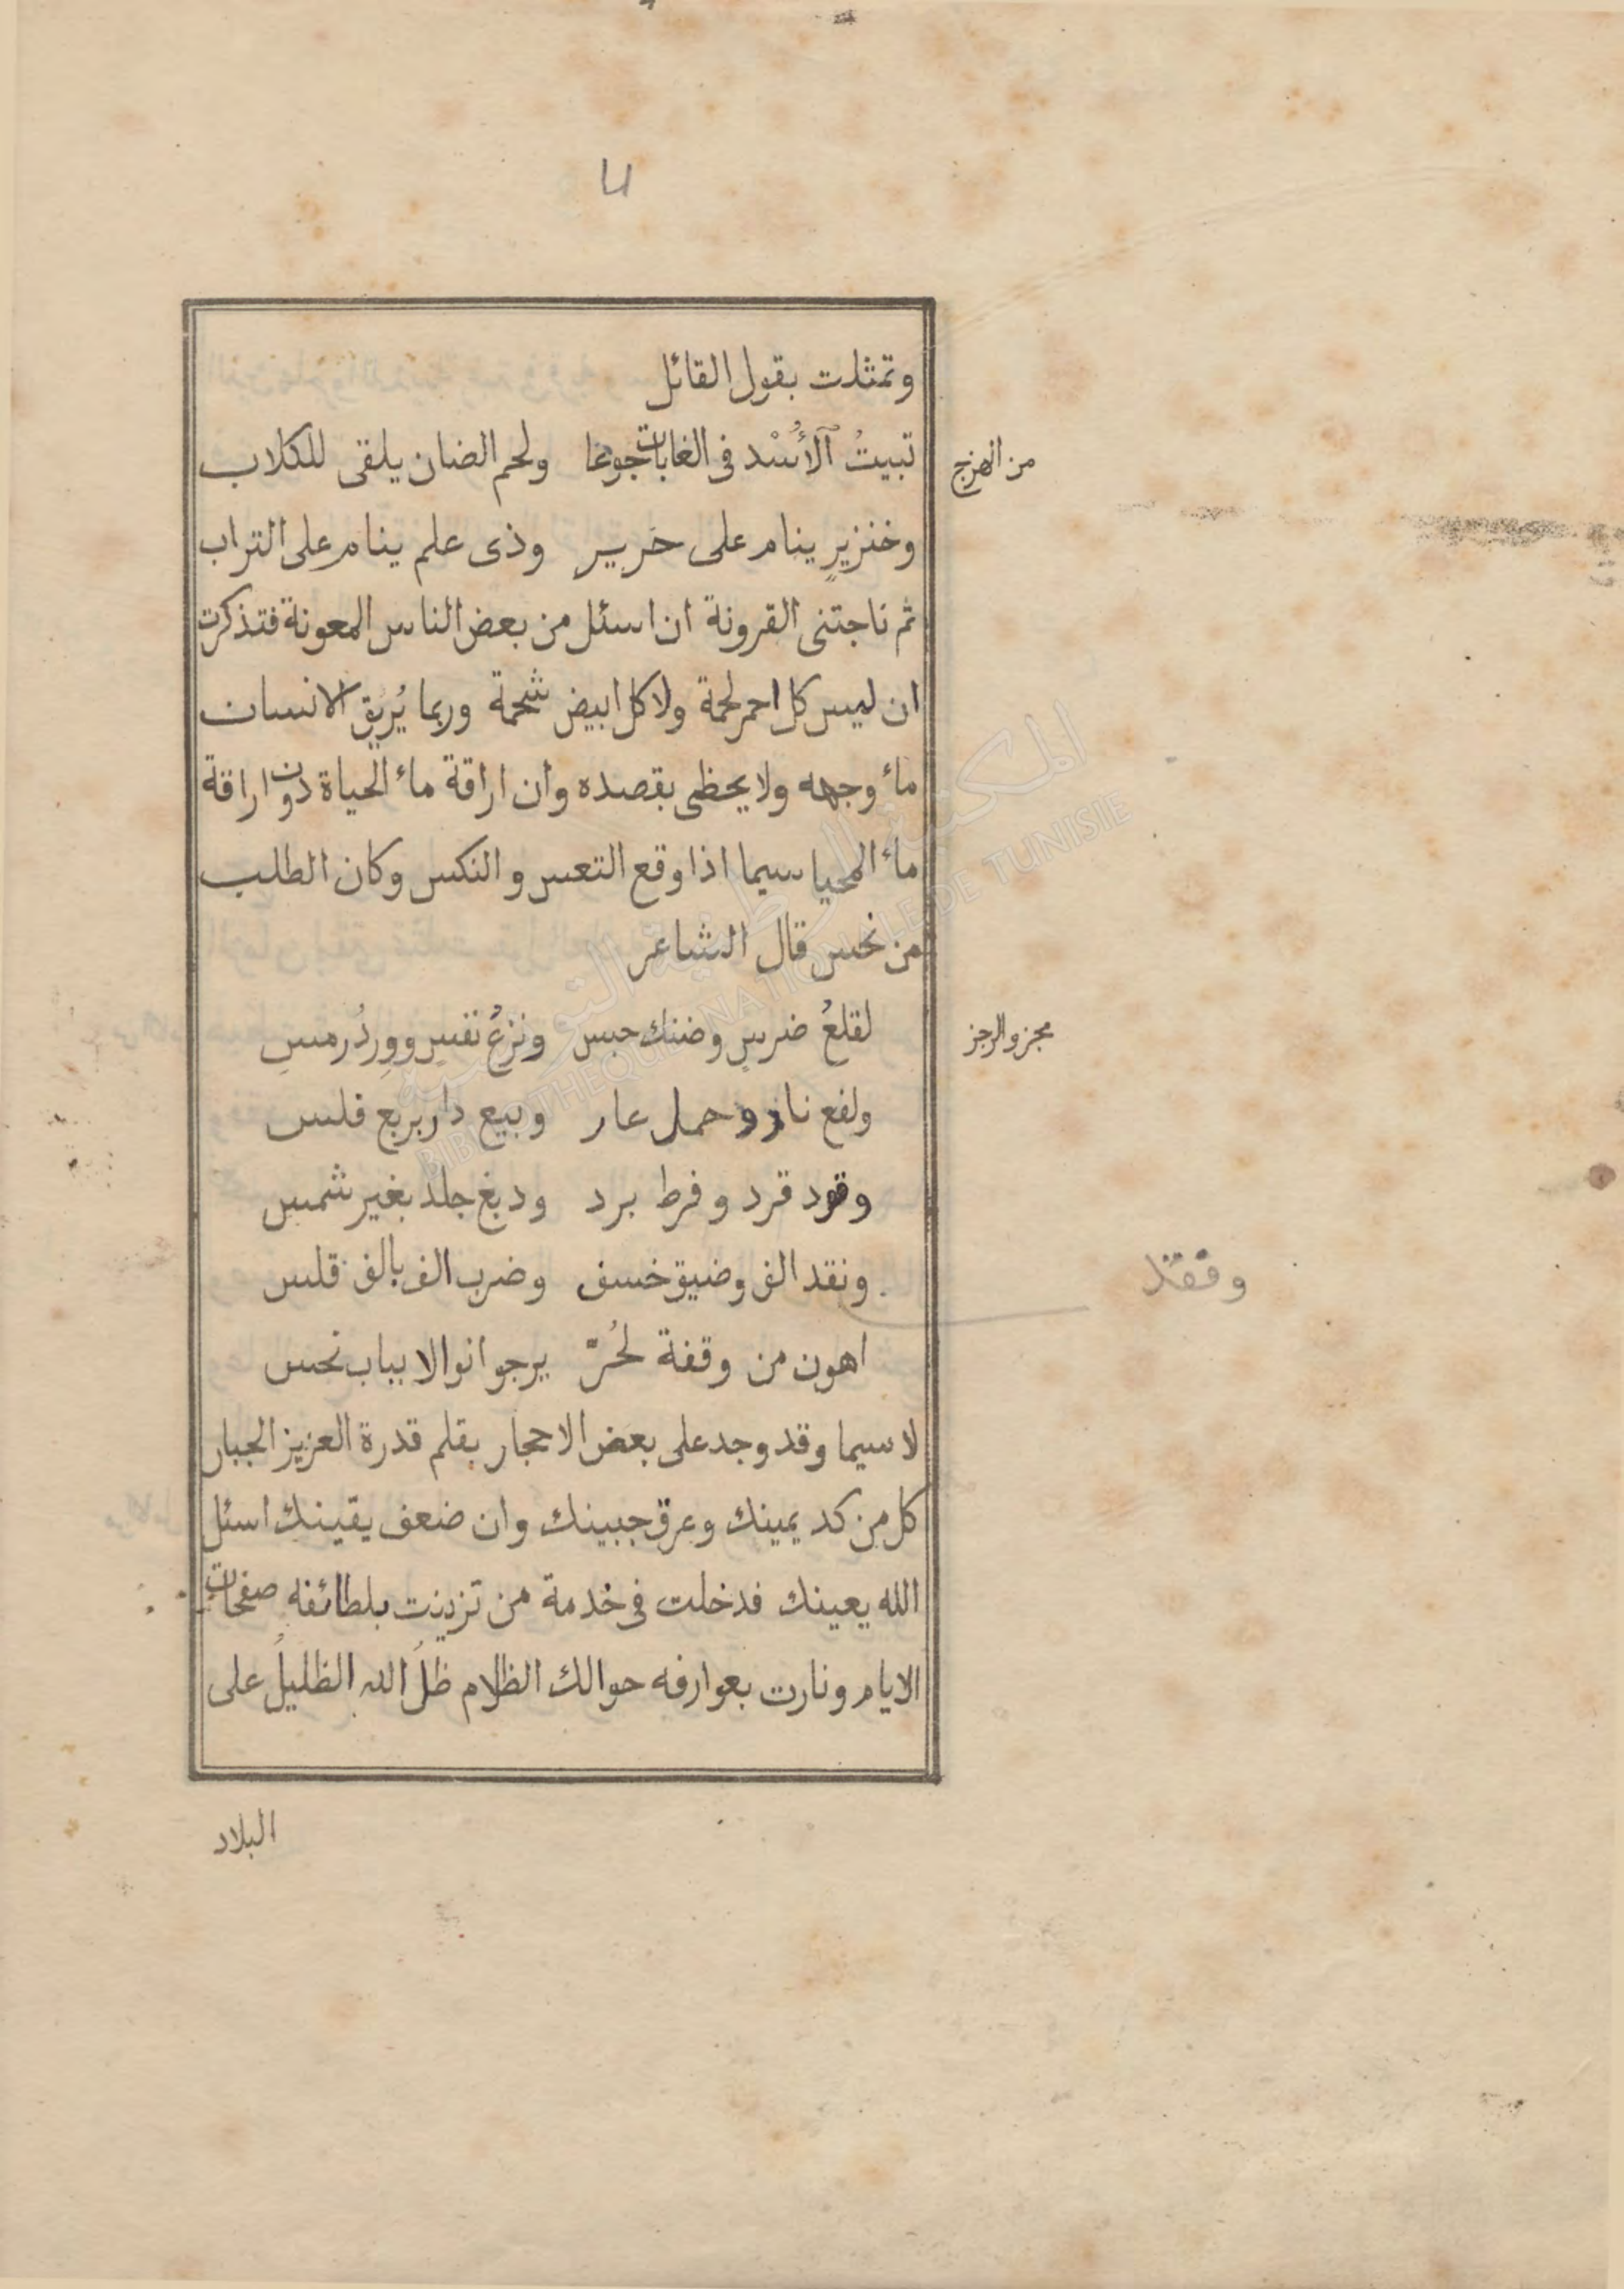 وتمثلت بقول القائل
من الهزج
تبيتُ ٱلأُسْد فى الغابات جوعا ولحم الضان يلقى للكلاب
وخنزيرٍ ينام على حَرير وذى علم ينام على التراب
ثم ناجتنى القرونة ان اسئل من بعض الناس المعونة فتذكرت
ان ليس كل احمر لحمة ولا كل ابيض شحمة وربما يُريق الانسان
ماء وجهه ولا يحظى بقصده وان اراقة ماء الحياة دون اراقة
ماء المحيا سيما اذا وقع التعس والنكس وكان الطلب
من نحس قال الشاعر
مجزو الرجز
لقلعُ ضرسٍ وضنك حبس ونزعُ نفسٍ ووردُ رمسِ
ولفع نار وحمل عار وبيع دار بربع فلس
وقود قرد وفرط برد ودبغ جلد بغير شمس
ونقد الف وضيق خسف وضرب الف بالف قلس
وفقد
اهون من وقفة لحُرّ يرجو انوالا بباب نحس
لا سيما وقد وجد على بعض الاحجار بقلم قدرة العزيز الجبار
كل من كد يمينك وعرق جبينك وان ضعف يقينك اسئل
الله يعينك فدخلت فى خدمة من تزينت بلطائفه صفحات
الايام ونارت بعوارفه حوالك الظلام ظلُ الله الظليلُ على
البلاد
المكتبة الوطنية التونسية
BIBLIOTHEQUE NATIONALE DE TUNISIE